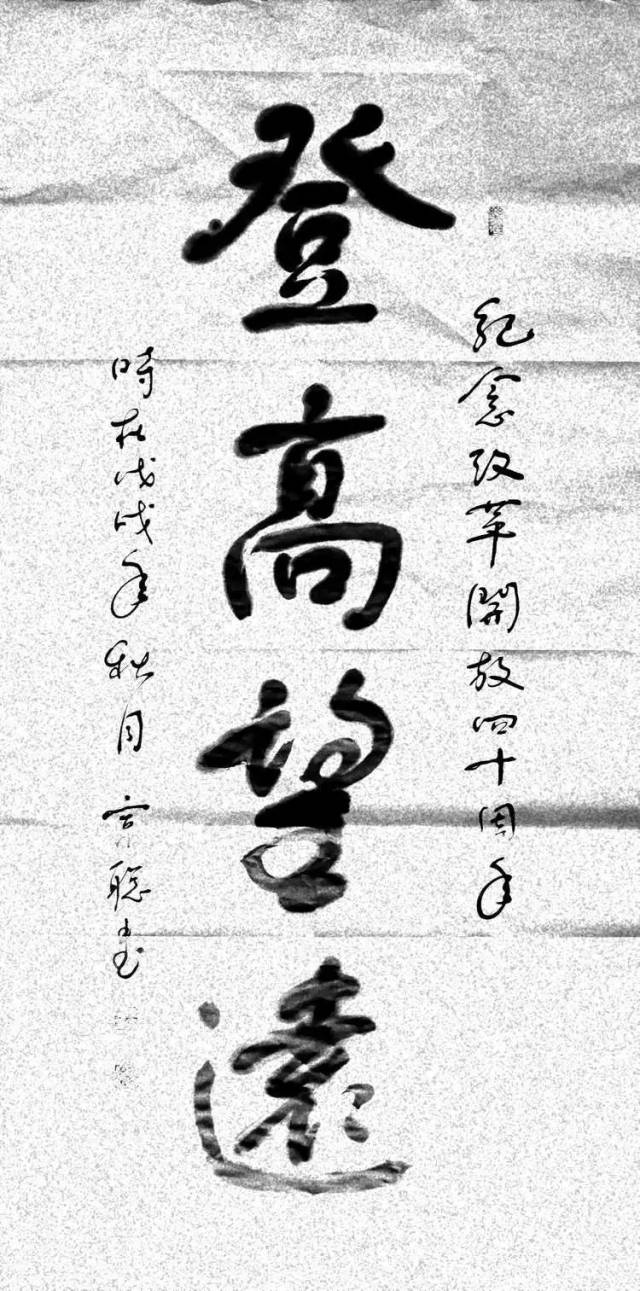 紀念改革開放四十周年
登高望遠
時在戊戌年秋月宗聰書